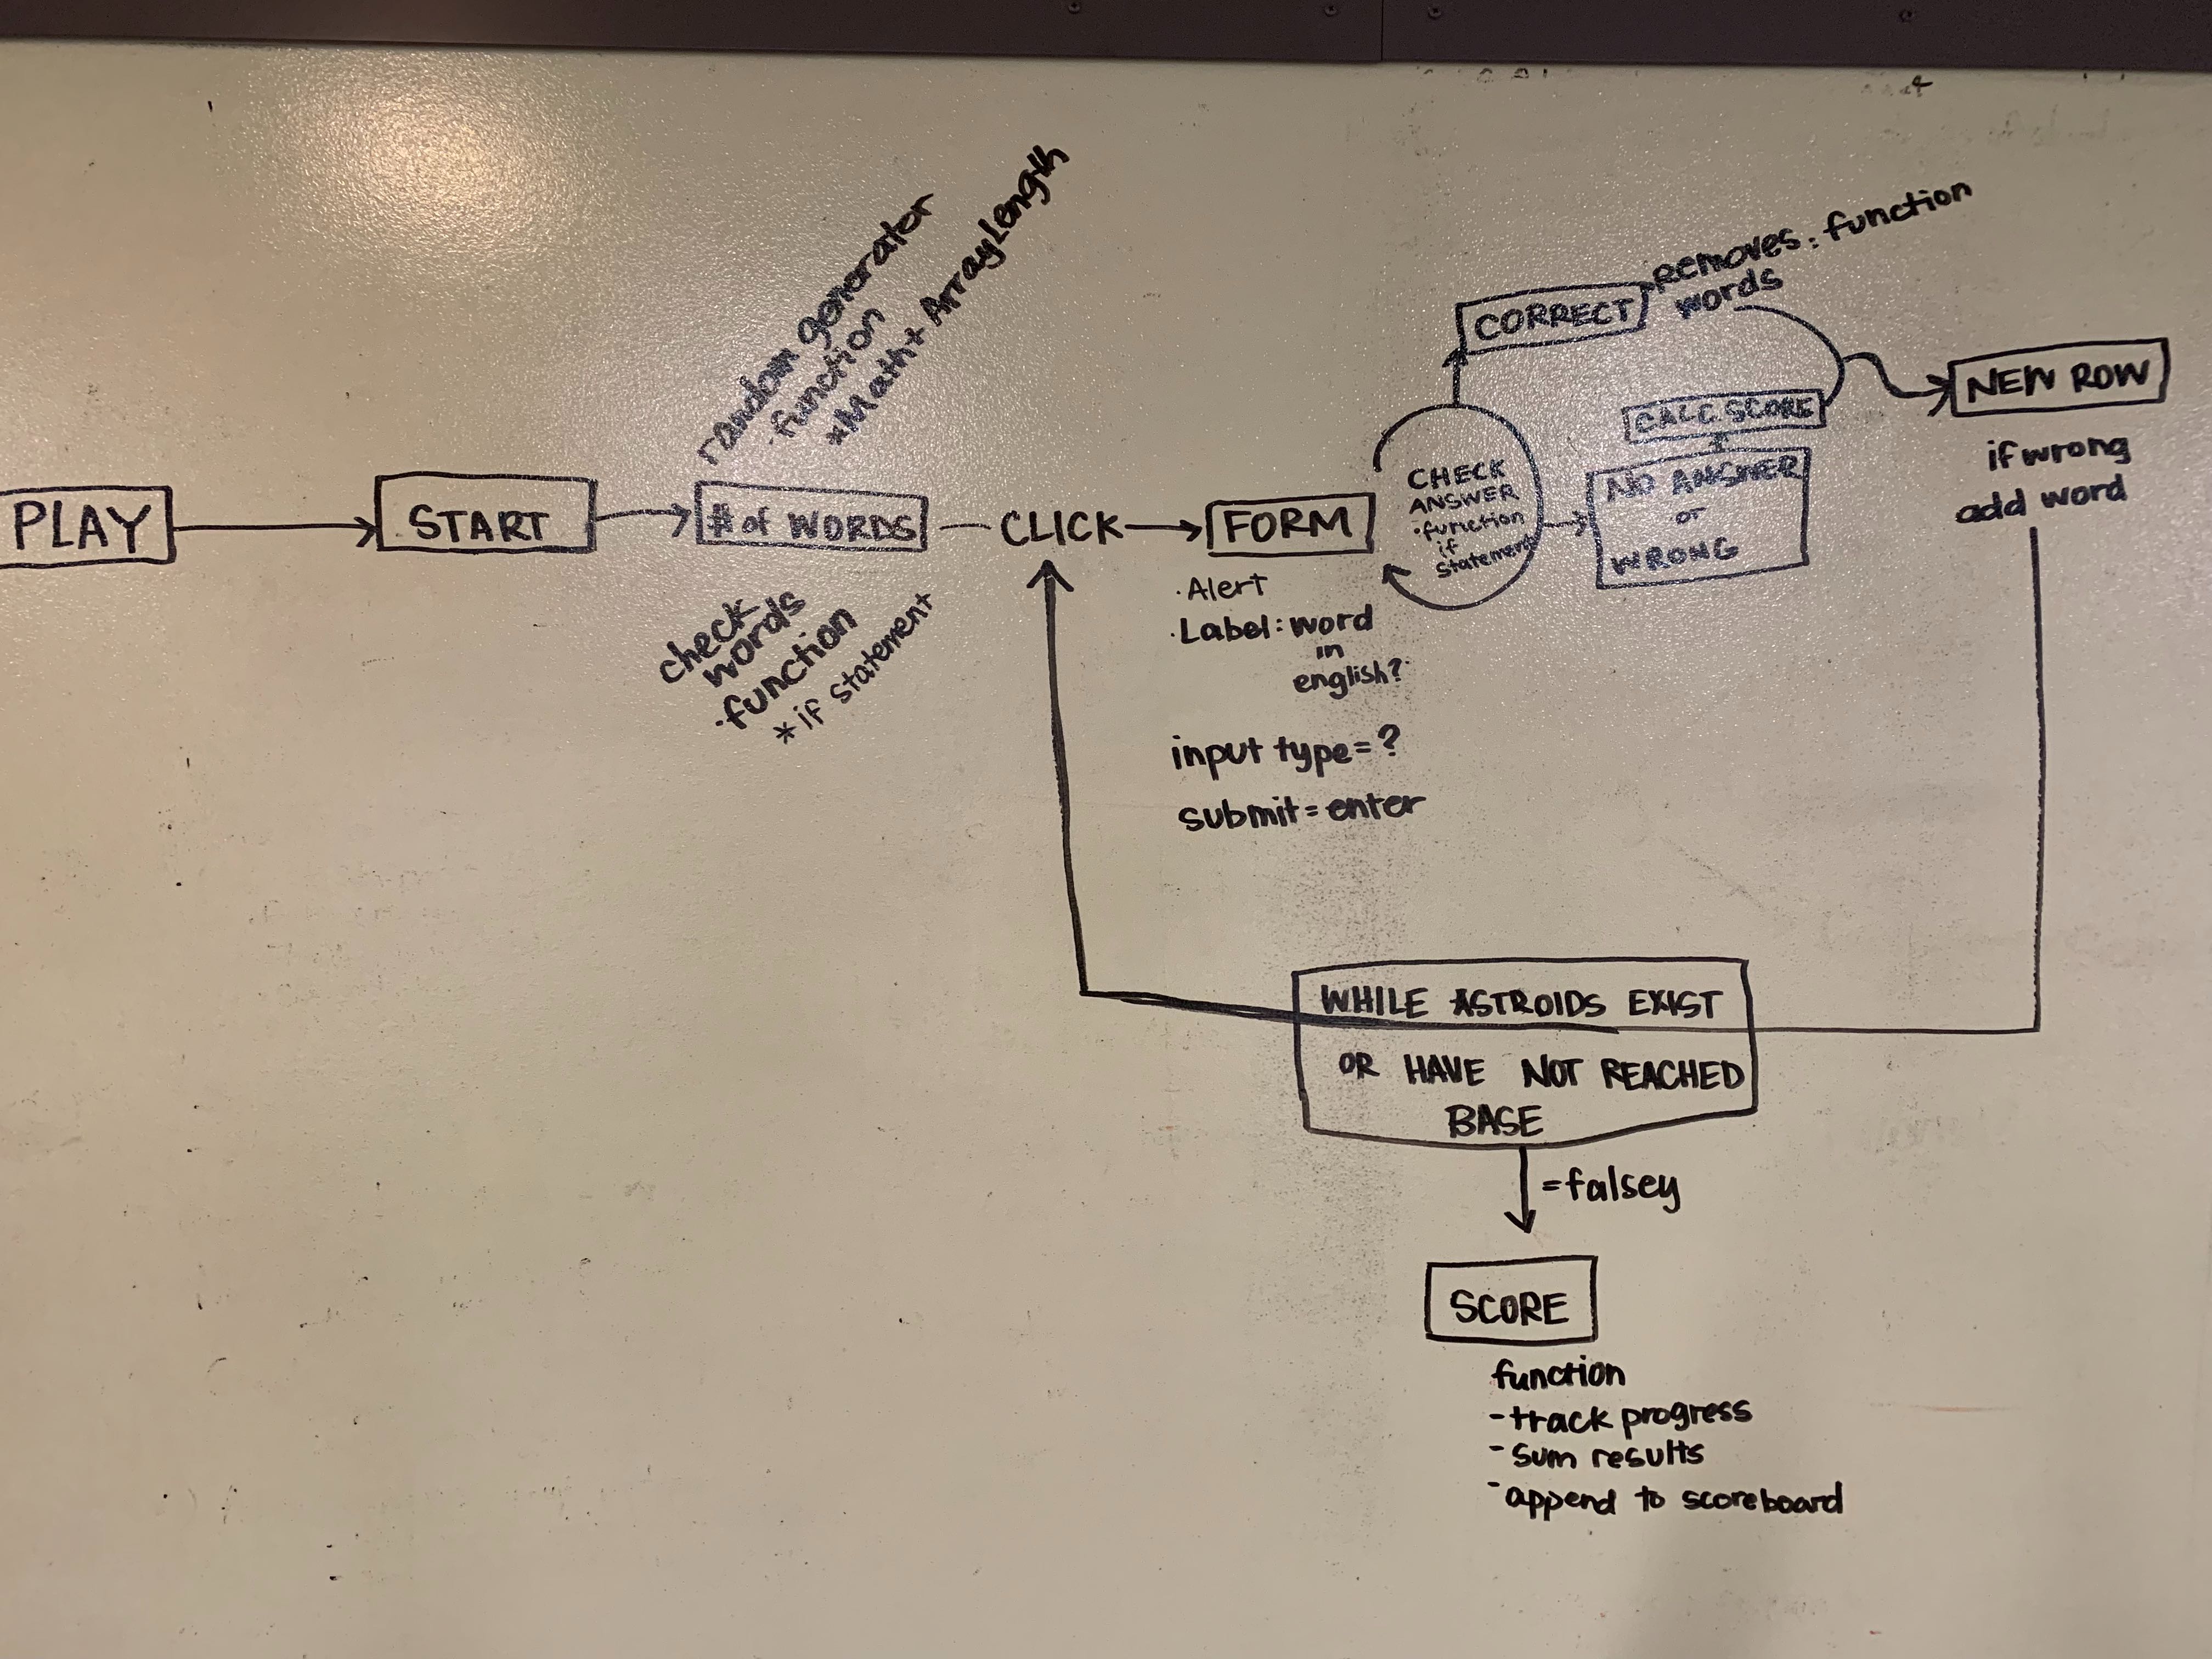 PLAY
START
# of WORDS
random generator
· function
*Math + Array Length
check
words
· function
* if statement
CLICK
FORM
· Alert
· Label: word
in
english?
input type = ?
submit = enter
CHECK
ANSWER
· function
if
statement
CORRECT
removes : function
words
CALC. SCORE
NO ANSWER
or
WRONG
NEW ROW
if wrong
add word
WHILE ASTROIDS EXIST
OR HAVE NOT REACHED
BASE
= falsey
SCORE
function
- track progress
- sum results
- append to scoreboard